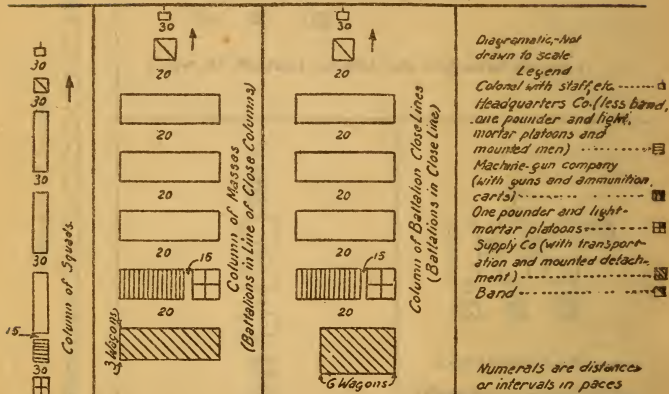 30
30
30
30
15
30
Column of Squads
30
20
20
20
16
20
3 Wagons
Column of Masses
(Battations in Line of Close Columns)
30
20
20
20
15
20
6 Wagons
Column of Battation Close Lines
(Battations in Close Line)
Diagramatic,-Not
drawn to scale
Legend
Colonal with staff, etc.
Headquarters Co. (less band,
one pounder and light,
mortar platoons and
mounted men)
Machine-gun company
(with guns and ammunition,
carts)
One pounder and light-
mortar platoons
Supply Co (with transport-
ation and mounted detach-
ment)
Band
Numerals are distances
or intervals in paces